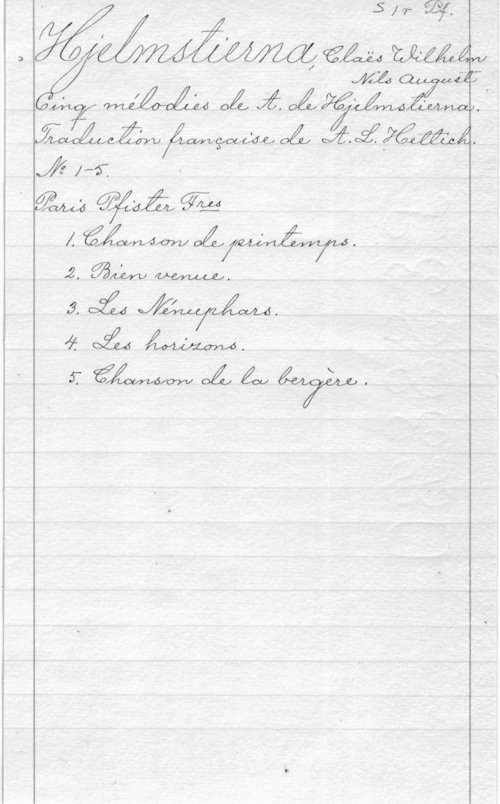 S 1 r Pf.
Hjelmstierna, Claës Wilhelm
Nils August
Cinq mélodies de A. de Hjelmstierna.
Traduction française de A. L. Hettich.
№ 1-5.
Paris Pfister Fres
1. Chanson de printemps.
2. Bien venue.
3. Les Nénuphars.
4. Les horizons.
5. Chanson de la bergère.